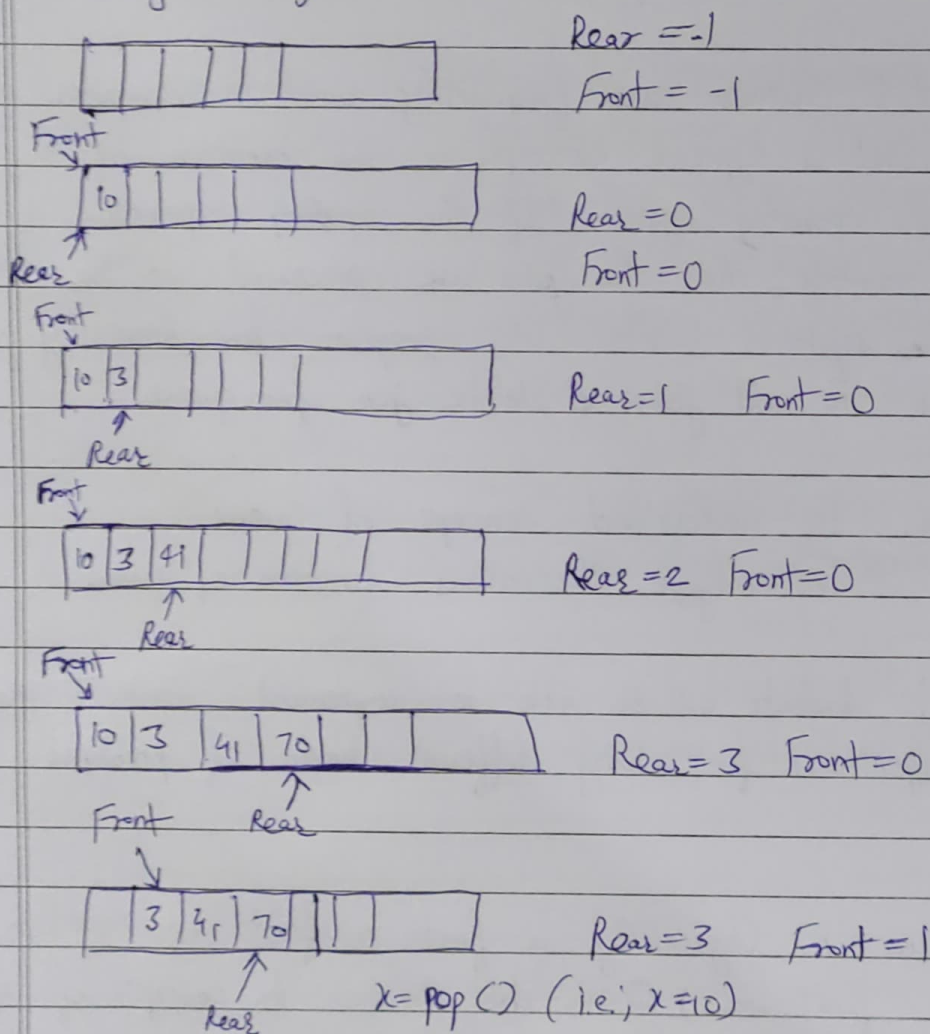 Rear = -1
Front = -1
Front
10
Rear = 0
Rear
Front = 0
Front
10 3
Rear = 1 Front = 0
Rear
Front
10 3 41
Rear = 2 Front = 0
Rear
Front
10 3 41 70
Rear = 3 Front = 0
Front Rear
3 41 70
Rear = 3 Front = 1
x = pop () (i.e; x = 10)
Rear